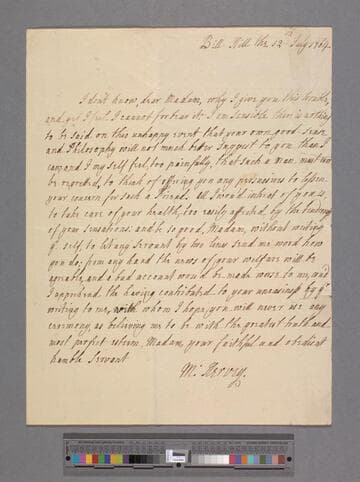 Bill Hill the 12th July 1764.
I don't know, dear Madam, why I give you this trouble,
and yet I feel I cannot forbear it: I am sensible there is nothing
to be said on this unhappy event that your own good sense
and Philosophy will not much better suggest to you than I
can, and I my self feel, too painfully, that such a man, must ever
be regreted, to think of offering you any perswasions to lessen
your concern for such a Friend. All I wou'd intreat of you is,
to take care of your health, too easily affected by the tenderness
of your sensations; and be so good, Madam, without writing
yr. self, to let any Servant by two lines send me word how
you do; from any hand the news of your welfare will be
agreable, and a bad account wou'd be made worse to me, was
I apprehend the having contributed to your uneasiness by yr.
writing to me, with whom I hope you will never use any
ceremony, as believing me to be with the greatest truth and
most perfect esteem, Madam, your faithful and obedient
humble Servant
M: Hervey.